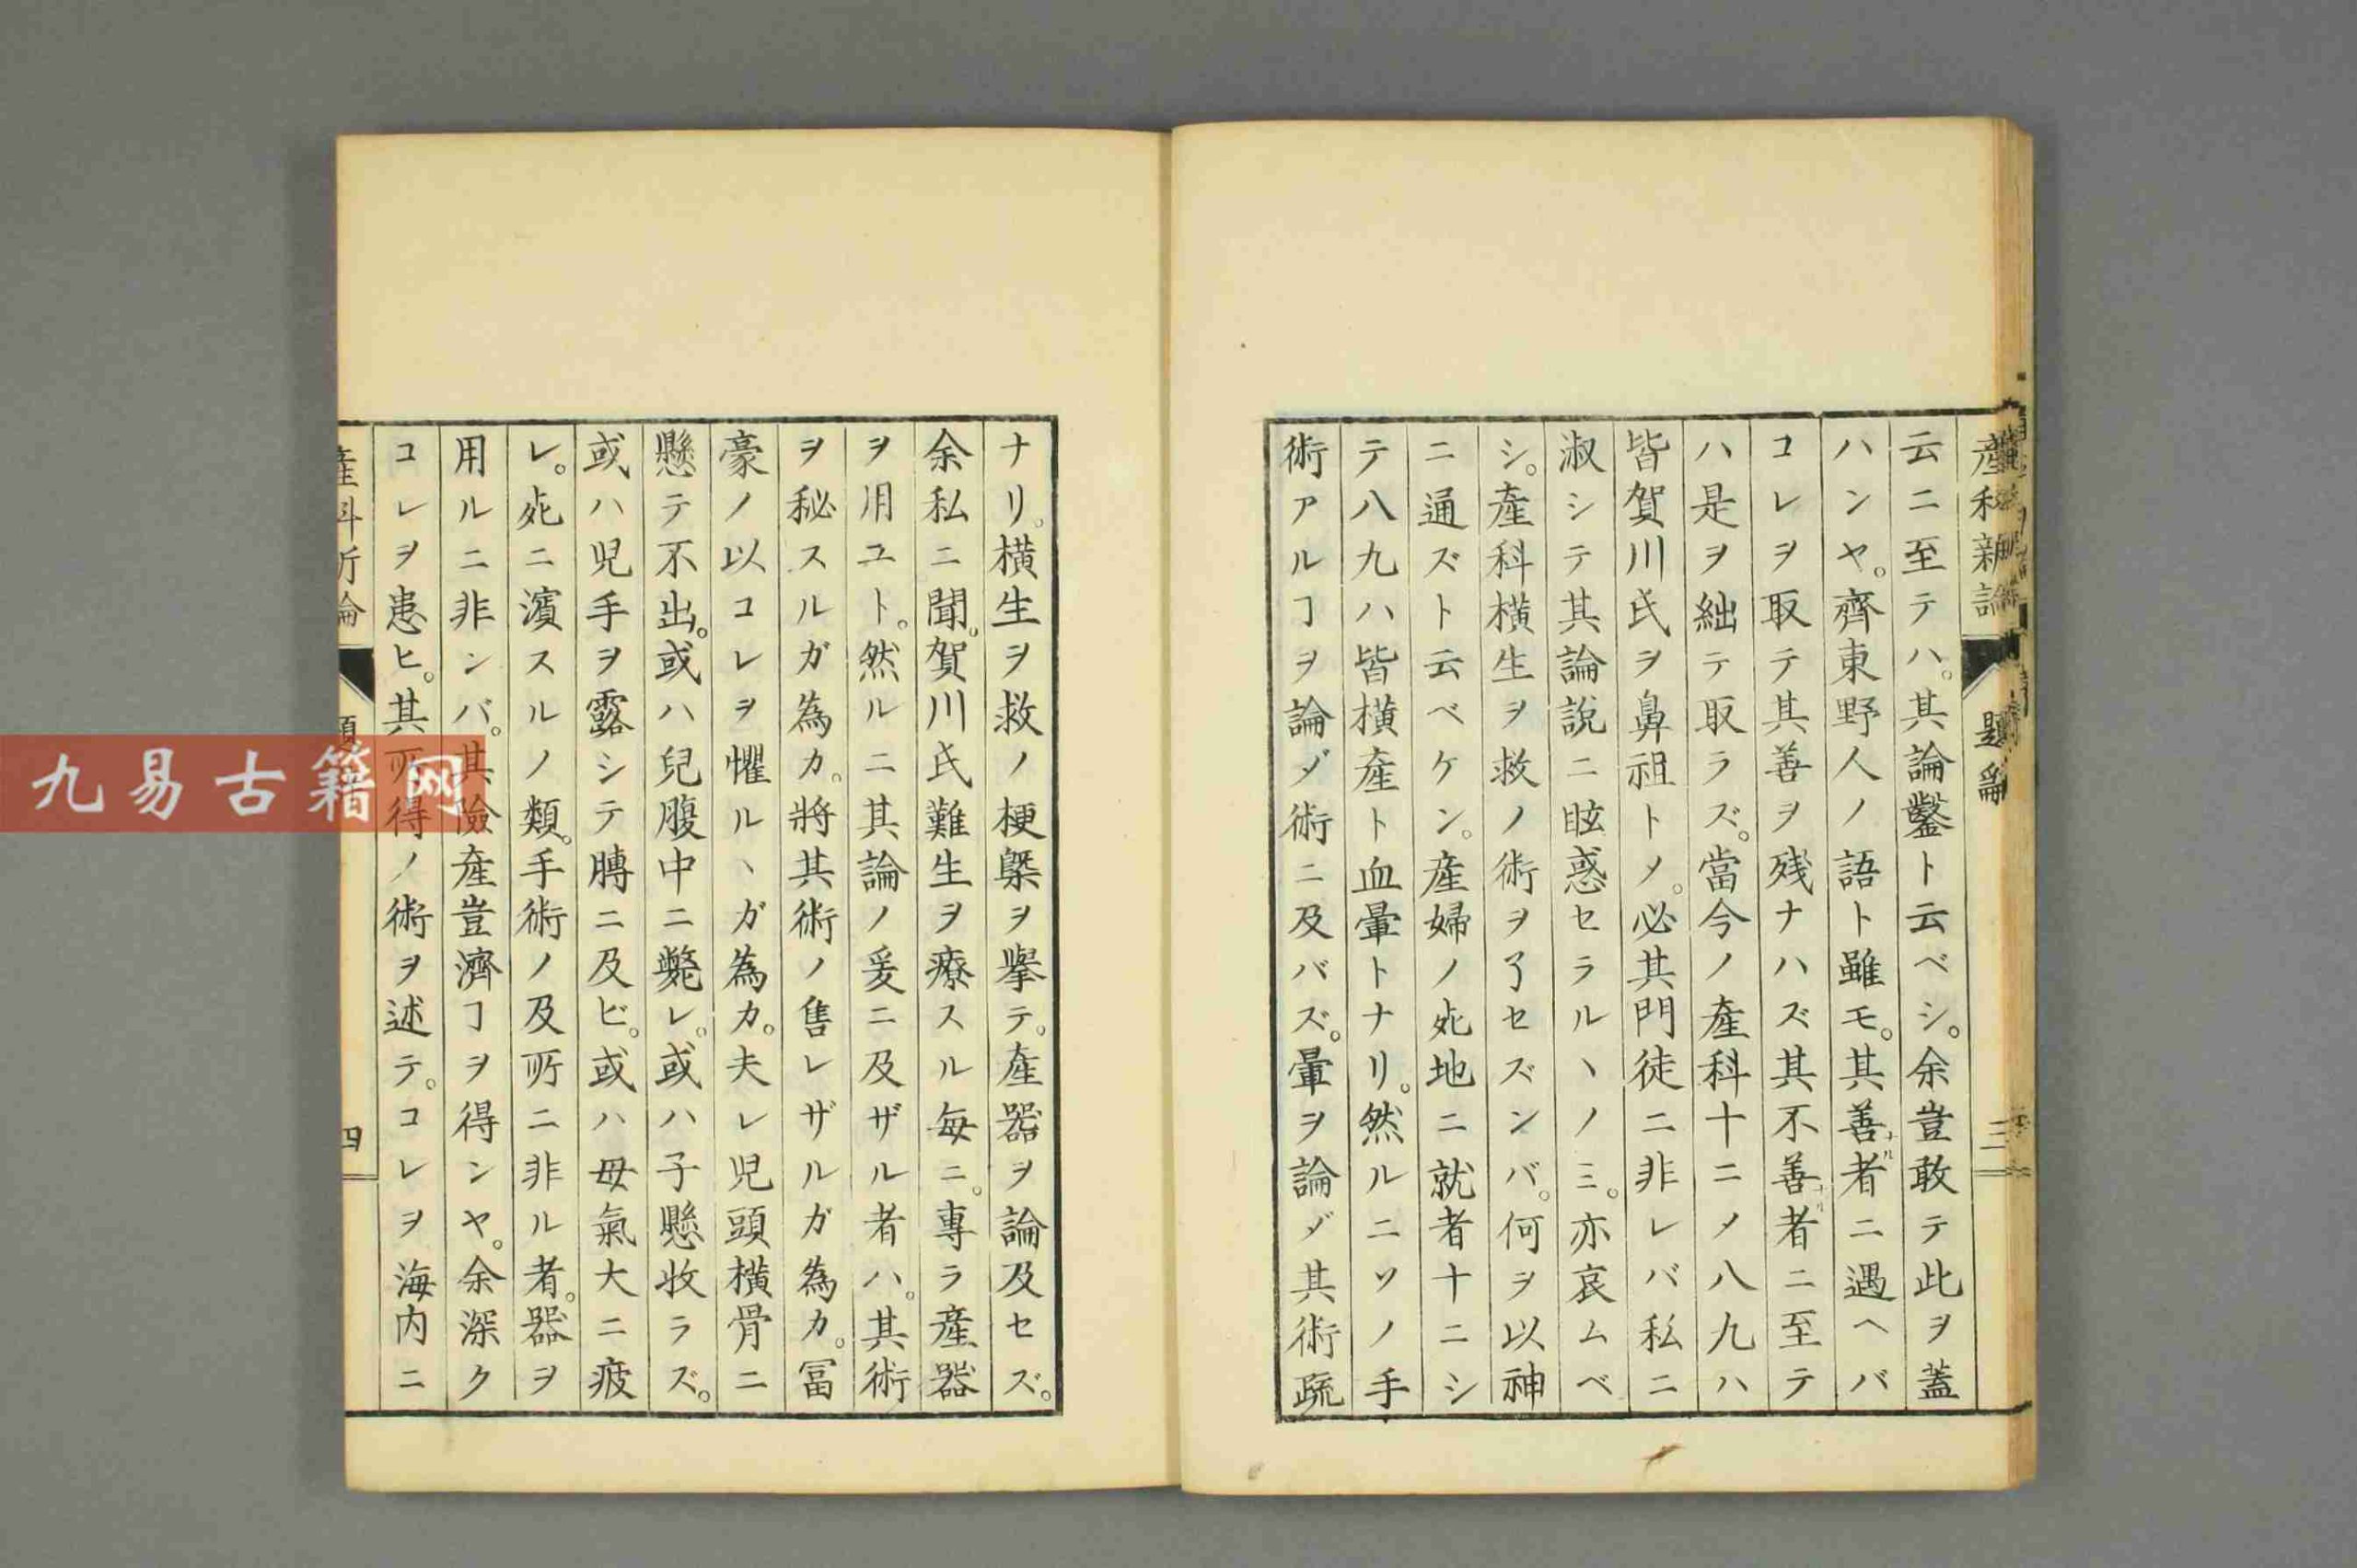 産科新論
題爲
三
云ニ至テハ。其論鑿ト云ベシ。余豈敢テ此ヲ蓋
ハンヤ。齊東野人ノ語ト雖モ。其善者ニ遇ヘバ
コレヲ取テ其善ヲ残ナハズ其不善者ニ至テ
ハ是ヲ絀テ取ラズ。當今ノ産科十ニメ八九ハ
皆賀川氏ヲ鼻祖トメ。必其門徒ニ非レバ私ニ
淑シテ其論説ニ眩惑セラルヽノミ。亦哀ムベ
シ。産科横生ヲ救ノ術ヲ了セズンバ。何ヲ以神
ニ通ズト云ベケン。産婦ノ死地ニ就者十ニシ
テ八九ハ皆横産ト血暈トナリ。然ルニソノ手
術アルヿヲ論ゾ術ニ及バズ。暈ヲ論ゾ其術疏
ナリ。横生ヲ救ノ梗槩ヲ擧テ。産器ヲ論及セズ。
余私ニ聞。賀川氏難生ヲ療スル毎ニ。專ラ産器
ヲ用ユト。然ルニ其論ノ爰ニ及ザル者ハ。其術
ヲ秘スルガ為カ。將其術ノ售レザルガ為カ。冨
豪ノ以コレヲ懼ルヽガ為カ。夫レ児頭横骨ニ
懸テ不出。或ハ兒腹中ニ斃レ。或ハ子懸收ラズ。
或ハ児手ヲ露シテ膊ニ及ビ。或ハ母氣大ニ疲
レ。死ニ濱スルノ類。手術ノ及所ニ非ル者。器ヲ
用ルニ非ンバ。其險産豈濟ヿヲ得ンヤ。余深ク
コレヲ患ヒ。其所得ノ術ヲ述テ。コレヲ海内ニ
産科新論
四
九易古籍网